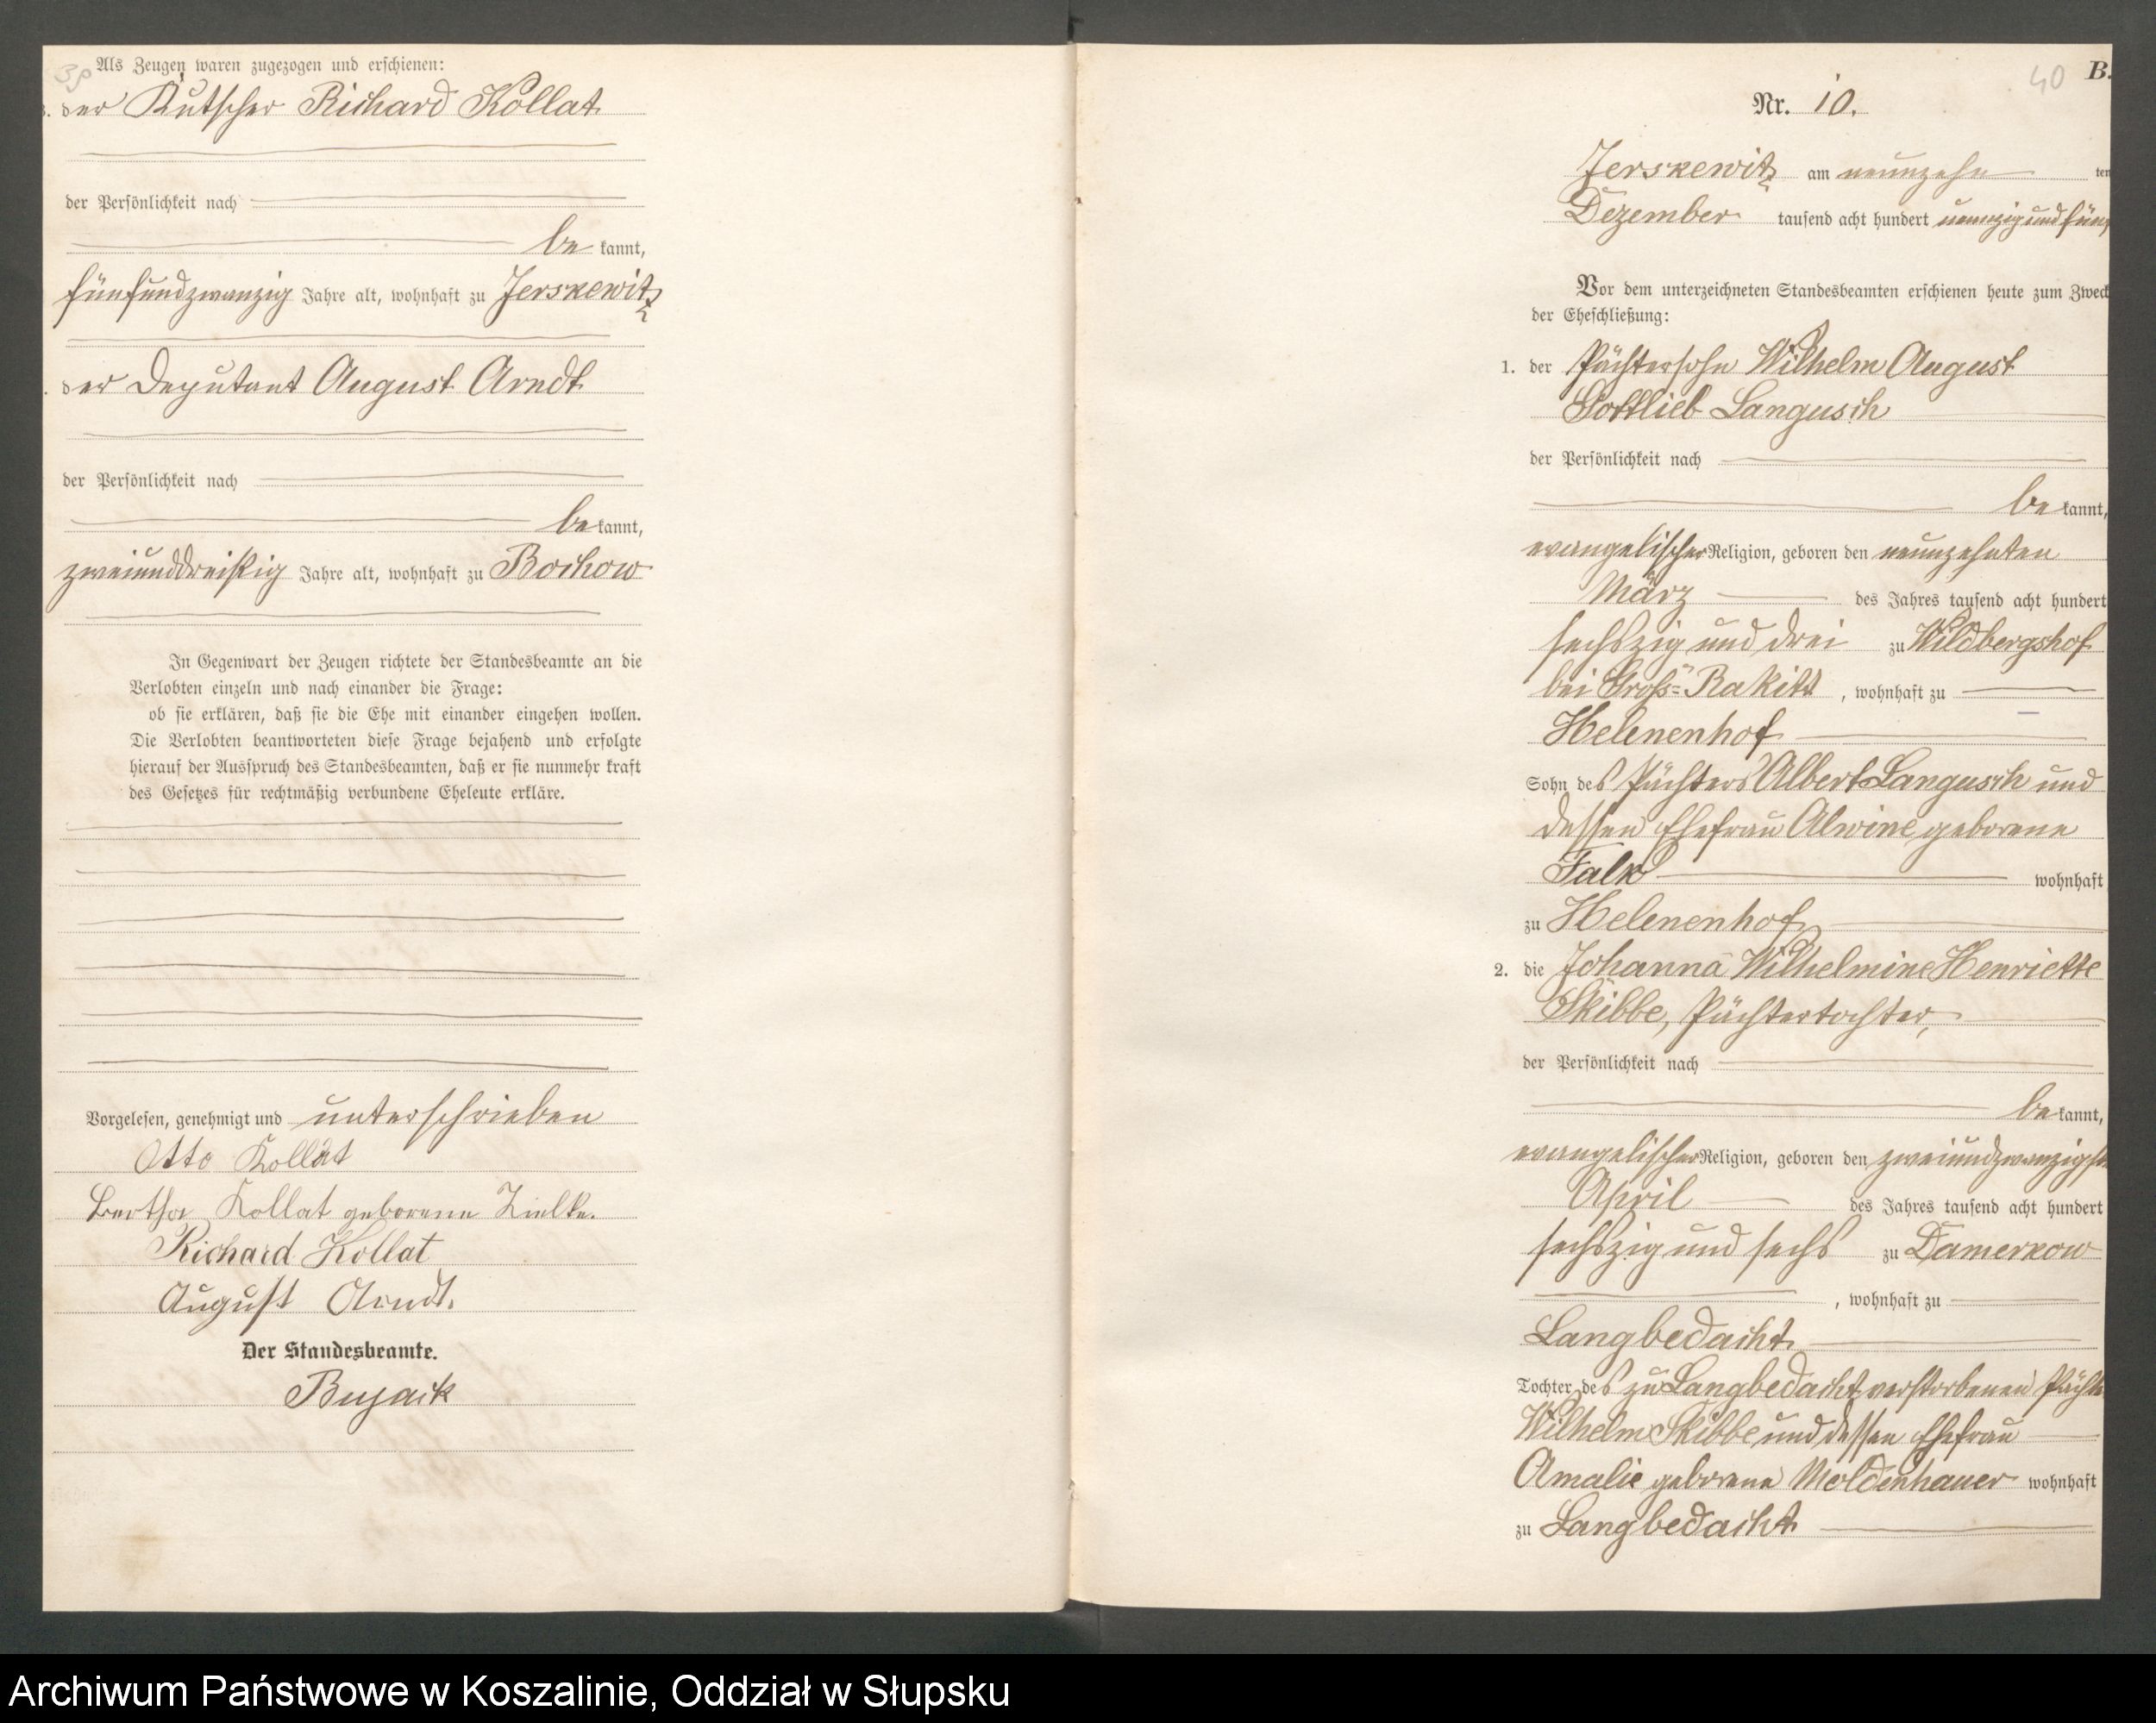 39
Als Zeugen waren zugezogen und erschienen:
3. der Kutscher Richard Kollat
der Persönlichkeit nach
be kannt,
fünfundzwanzig Jahre alt, wohnhaft zu Jerskewitz
der Deputant August Arndt
der Persönlichkeit nach
be kannt,
zweiunddreißig Jahre alt, wohnhaft zu Bochow
In Gegenwart der Zeugen richtete der Standesbeamte an die
Verlobten einzeln und nach einander die Frage:
ob sie erklären, daß sie die Ehe mit einander eingehen wollen.
Die Verlobten beantworteten diese Frage bejahend und erfolgte
hierauf der Ausspruch des Standesbeamten, daß er sie nunmehr kraft
des Gesetzes für rechtmäßig verbundene Eheleute erkläre.
Vorgelesen, genehmigt und unterschrieben
Otto Kollat
Bertha Kollat geborene Zielke.
Richard Kollat
August Arndt.
Der Standesbeamte.
Bujack
40
B.
Nr. 10.
Jerskewitz am neunzehn ten
Dezember tausend acht hundert neunzig und fünf
Vor dem unterzeichneten Standesbeamten erschienen heute zum Zweck
der Eheschließung:
1. der Pächtersohn Wilhelm August
Gottlieb Langusch
der Persönlichkeit nach
be kannt,
evangelischer Religion, geboren den neunzehnten
März des Jahres tausend acht hundert
sechszig und drei zu Wildbergshof
bei Groß-Rakitt, wohnhaft zu
Helenenhof
Sohn des Pächters Albert Langusch und
dessen Ehefrau Alwine geborene
Falk wohnhaft
zu Helenenhof
2. die Johanna Wilhelmine Henriette
Skibbe, Pächtertochter,
der Persönlichkeit nach
be kannt,
evangelischer Religion, geboren den zweiundzwanzigsten
April des Jahres tausend acht hundert
sechszig und sechs zu Damerkow
, wohnhaft zu
Langbedacht
Tochter des zu Langbedacht verstorbenen Pächte
Wilhelm Skibbe und dessen Ehefrau
Amalie geborene Moldenhauer wohnhaft
zu Langbedacht
Archiwum Państwowe w Koszalinie, Oddział w Słupsku